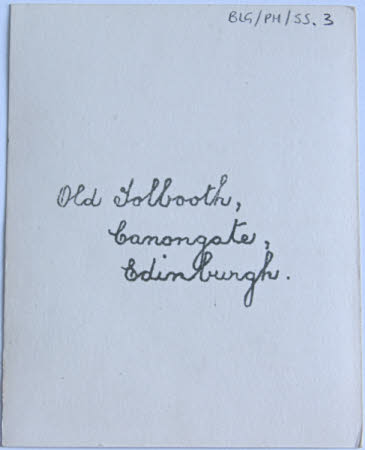 BLG/PH/SS.3
Old Tolbooth,
Canongate,
Edinburgh.